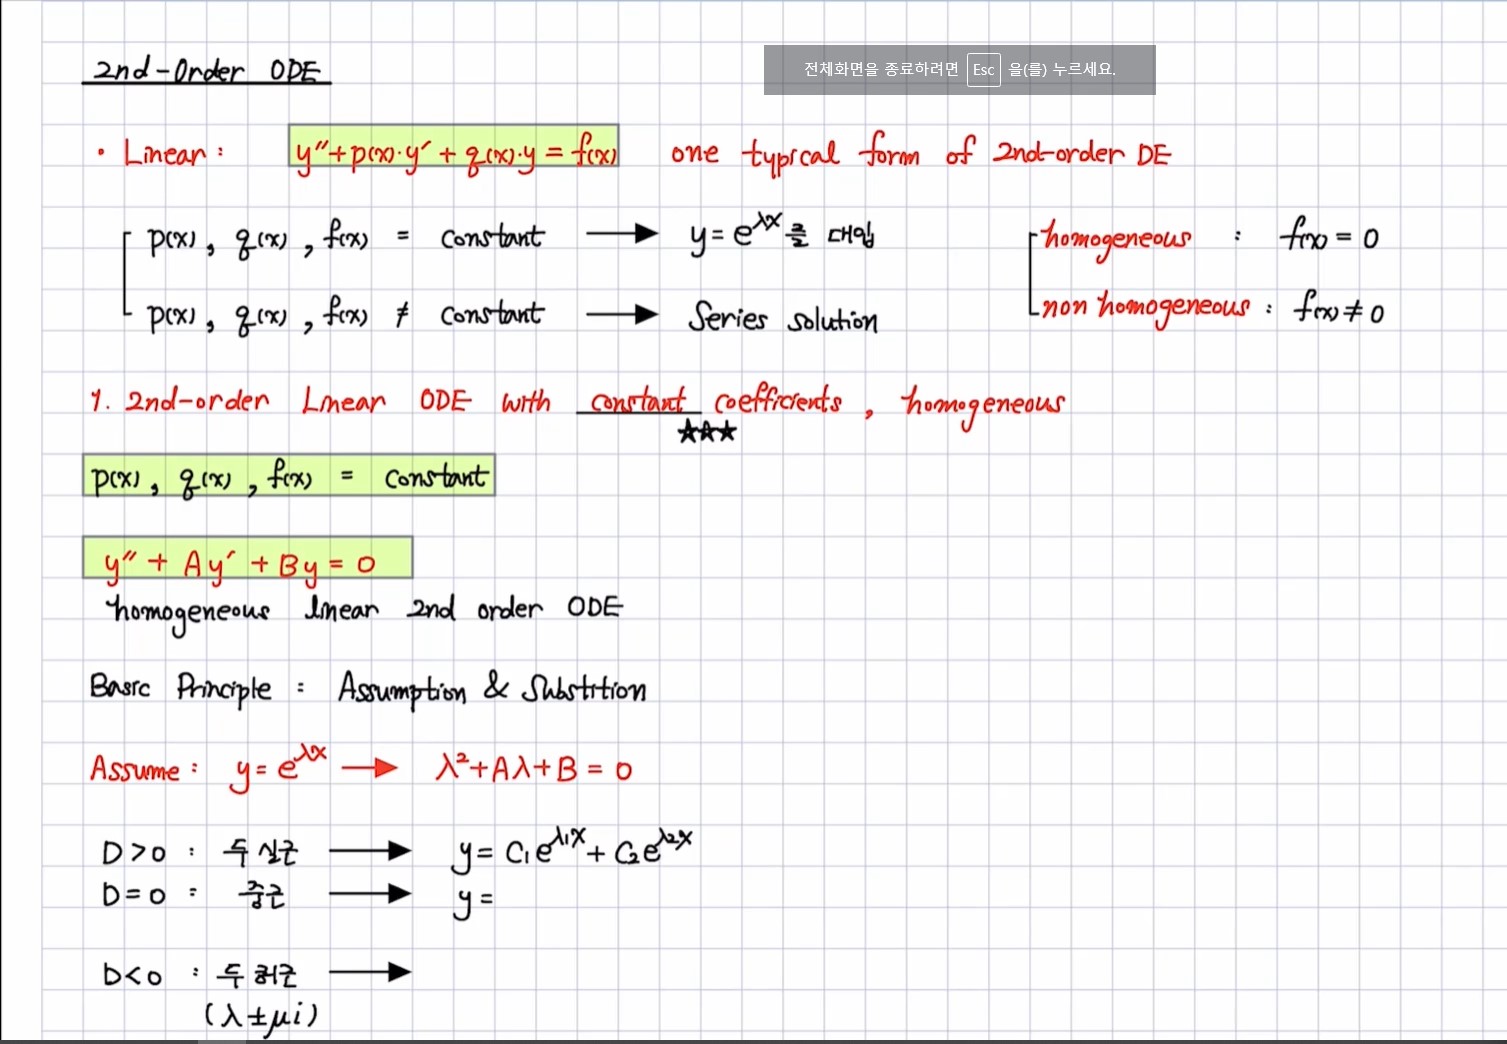 2nd-Order ODE
전체화면을 종료하려면 Esc 을(를) 누르세요.
• Linear : y″+p(x)·y′ + q(x)·y = f(x) one typical form of 2nd-order DE
p(x), q(x), f(x) = constant → y = e^λx 를 대입
homogeneous : f(x) = 0
p(x), q(x), f(x) ≠ constant → Series solution
non homogeneous : f(x) ≠ 0
1. 2nd-order Linear ODE with constant coefficients, homogeneous
★★★
p(x), q(x), f(x) = constant
y″ + Ay′ + By = 0
homogeneous linear 2nd order ODE
Basic Principle : Assumption & Substition
Assume : y = e^λx → λ²+Aλ+B = 0
D>0 : 두 실근 → y = C₁e^λ₁x + C₂e^λ₂x
D=0 : 중근 → y =
D<0 : 두 허근 →
(λ±μi)